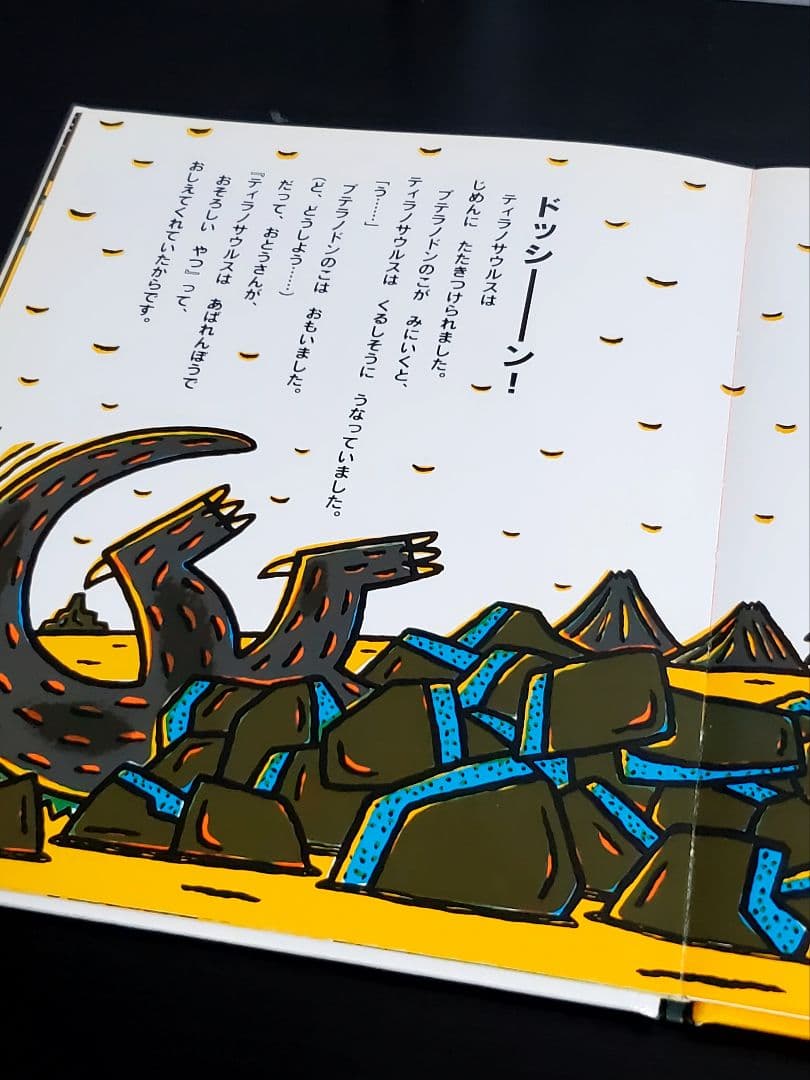 ドッシーーン！
ティラノサウルスは
じめんに　たたきつけられました。
プテラノドンのこが　みにいくと、
ティラノサウルスは　くるしそうに　うなっていました。
「う……」
プテラノドンのこは　おもいました。
（ど、どうしよう……）
だって、おとうさんが、
『ティラノサウルスは　あばれんぼうで
おそろしい　やつ』って、
おしえてくれていたからです。